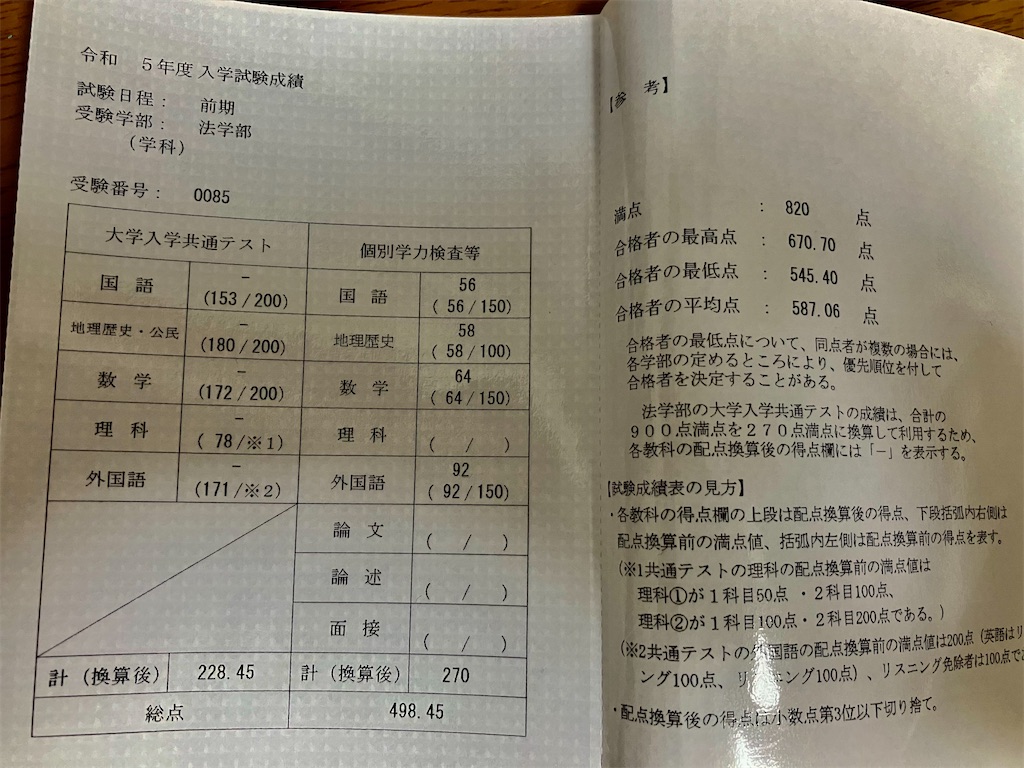 令和 5年度 入学試験成績
試験日程： 前期
受験学部： 法学部
（学科）
受験番号： 0085
大学入学共通テスト 個別学力検査等
国 語 － (153/200) 国 語 56 ( 56/150)
地理歴史・公民 － (180/200) 地理歴史 58 ( 58/100)
数 学 － (172/200) 数 学 64 ( 64/150)
理 科 － ( 78/※1) 理 科 ( / )
外国語 － (171/※2) 外国語 92 ( 92/150)
論 文 ( / )
論 述 ( / )
面 接 ( / )
計（換算後） 228.45 計（換算後） 270
総点 498.45
【参 考】
満点 ： 820 点
合格者の最高点 ： 670.70 点
合格者の最低点 ： 545.40 点
合格者の平均点 ： 587.06 点
合格者の最低点について、同点者が複数の場合には、
各学部の定めるところにより、優先順位を付して
合格者を決定することがある。
法学部の大学入学共通テストの成績は、合計の
９００点満点を２７０点満点に換算して利用するため、
各教科の配点換算後の得点欄には「－」を表示する。
【試験成績表の見方】
・各教科の得点欄の上段は配点換算後の得点、下段括弧内右側は
配点換算前の満点値、括弧内左側は配点換算前の得点を表す。
（※1共通テストの理科の配点換算前の満点値は
理科①が１科目50点 ・２科目100点、
理科②が１科目100点・２科目200点である。）
（※2共通テストの外国語の配点換算前の満点値は200点（英語はリ
ング100点、リスニング100点）、リスニング免除者は100点で
・配点換算後の得点は小数点第3位以下切り捨て。